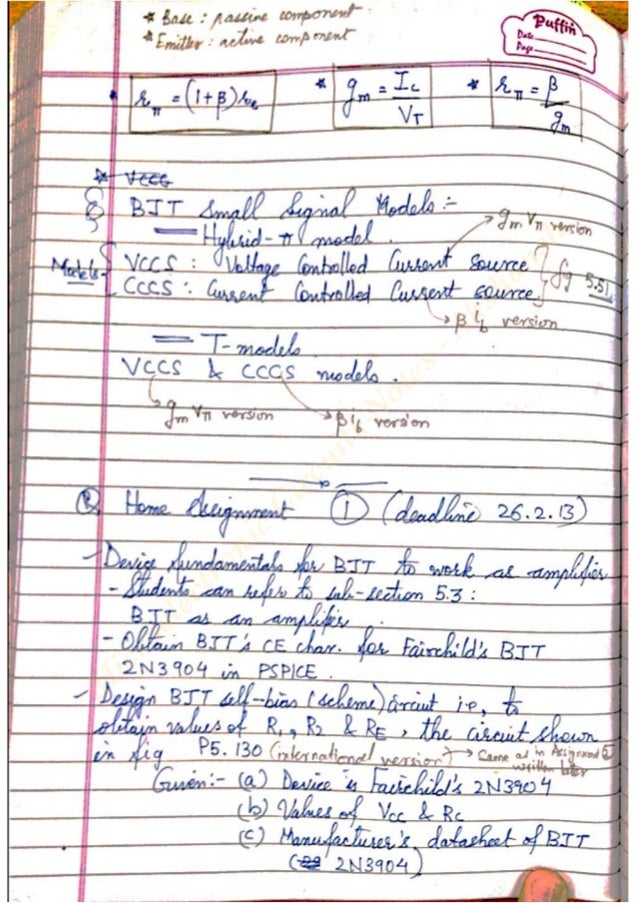 * Base : passive component
* Emitter : active component
Puffin
Date
Page
* rπ = (1+β) re
* gm = Ic / VT
* rπ = β / gm
* VCCG
§ BJT Small Signal Models :-
— Hybrid-π model .
→ gm vπ version
Models VCCS : Voltage Controlled Current Source
CCCS : Current Controlled Current source
fig 5.51
→ β ib version
— T-models
VCCS & CCCS models .
→ gm vπ version
→ β ib version
Home Assignment ① (deadline 26.2.13)
- Device fundamentals for BJT to work as amplifier
- Students can refer to sub-section 5.3 :
BJT as an amplifier .
- Obtain BJT's CE char. for Fairchild's BJT
2N3904 in PSPICE .
- Design BJT self-bias (scheme) circuit i.e, to
obtain values of R1, R2 & RE , the circuit shown
in fig P5.130 (international version) → Same as in Assignment
written later
Given:- (a) Device is Fairchild's 2N3904
(b) Values of Vcc & Rc
(c) Manufacturer's datasheet of BJT
( 2N3904)